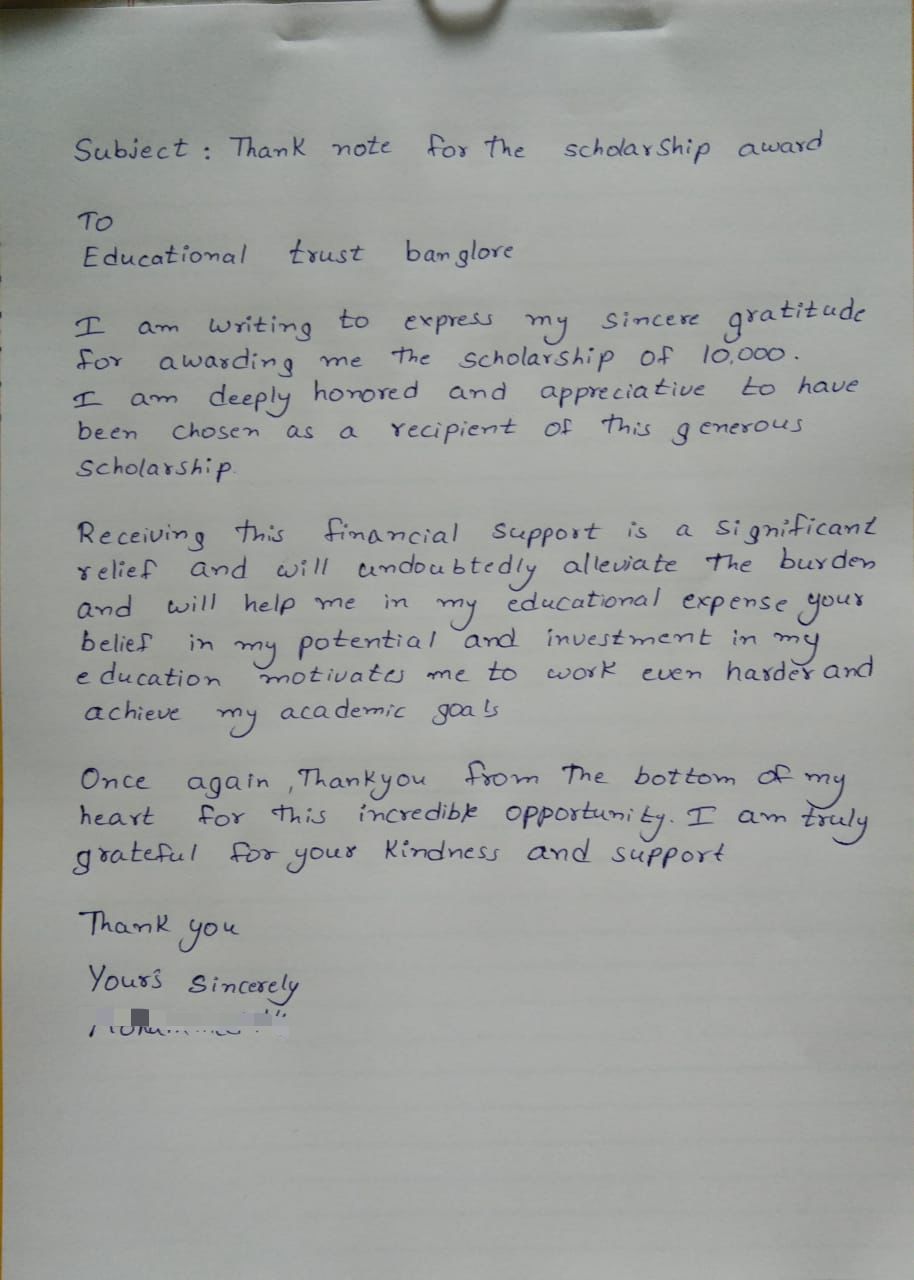 Subject : Thank note for the scholarship award
To
Educational trust banglore
I am writing to express my sincere gratitude
for awarding me the scholarship of 10,000.
I am deeply honored and appreciative to have
been chosen as a recipient of this generous
Scholarship.
Receiving this financial support is a significant
relief and will undoubtedly alleviate the burden
and will help me in my educational expense your
belief in my potential and investment in my
education motivates me to work even harder and
achieve my academic goals
Once again , Thankyou from the bottom of my
heart for this incredible opportunity. I am truly
grateful for your kindness and support
Thank you
Yours sincerely